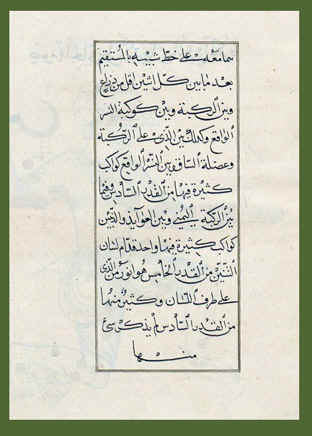 معه على خط شبيه بالمستقيم
بعد ما بين كل اثنين اقل من ذراع
وبين الركبة وبين كوكبة النسر
الواقع وكذلك بين الذي على الركبة
وعضلة الساق وبين النسر الواقع كواكب
كثيرة فيها من القدر السادس
بين الركبة اليمنى وبين العوائذ والتنين
كواكب كثيرة فيها واحد قدام لسان
التنين من القدر الخامس هو انور من الذى
على طرف اللسان وكثير منها
من القدر السادس لم يذكر شئ
منها